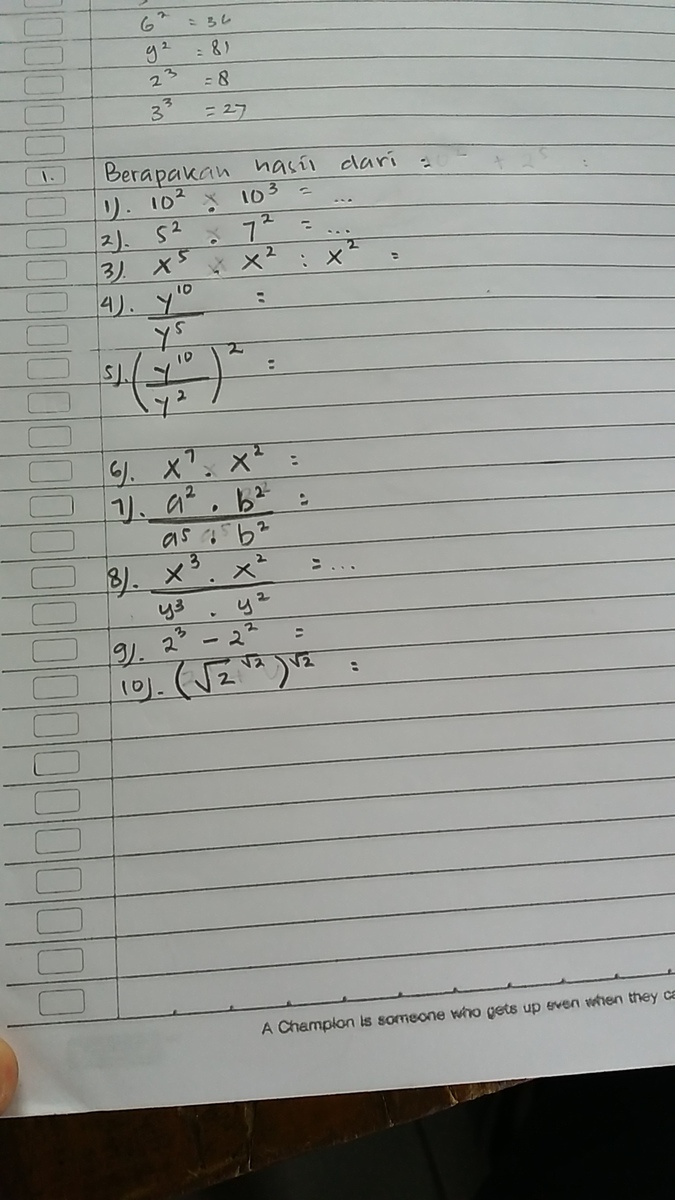 6² = 36
9² = 81
2³ = 8
3³ = 27
1. Berapakah hasil dari =
1). 10² . 10³ = ...
2). 5² . 7² = ...
3). x⁵ . x² : x² =
4). y¹⁰ =
y⁵
5). (y¹⁰ / y²)² =
6). x⁷ . x² =
7). a² . b² =
a⁵ . b²
8). x³ . x² = ...
y³ . y²
9). 2³ - 2² =
10). (√2^√2)^√2 =
A Champion is someone who gets up even when they